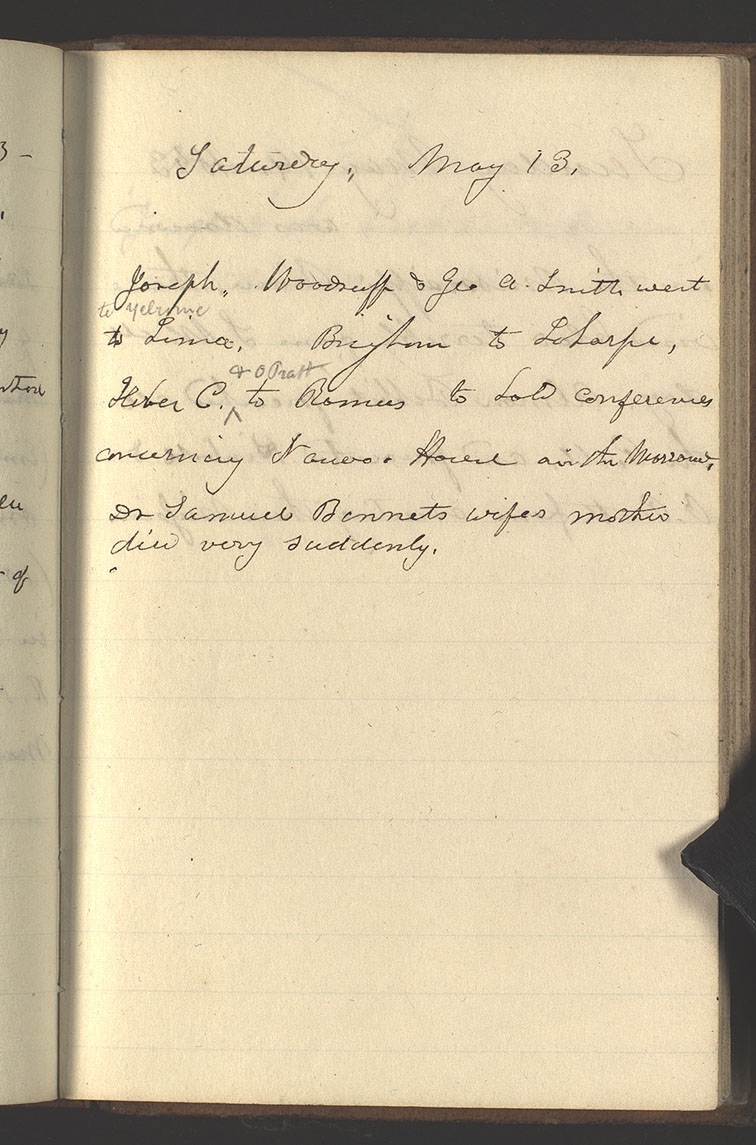 3 –
Saturday, May 13.
Joseph, Woodruff & Geo A. Smith went
to yelrome
to Lima, Brigham to Laharpe,
& O Pratt
Heber C. ^ to Ramus to hold conferences
concerning Nauvoo House on the Morrow,
Dr Samuel Bennets wifes mother
died very suddenly.
of